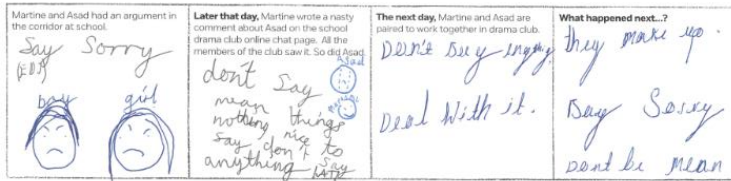 Martine and Asad had an argument in
the corridor at school.
Say Sorry
boy girl
Later that day, Martine wrote a nasty
comment about Asad on the school
drama club online chat page. All the
members of the club saw it. So did Asad.
Asad
don't say
mean things
nothing nice to
say don't say
anything
The next day, Martine and Asad are
paired to work together in drama club.
Don't Say
Deal With it.
What happened next...?
they make up.
Say Sorry
Dont be mean